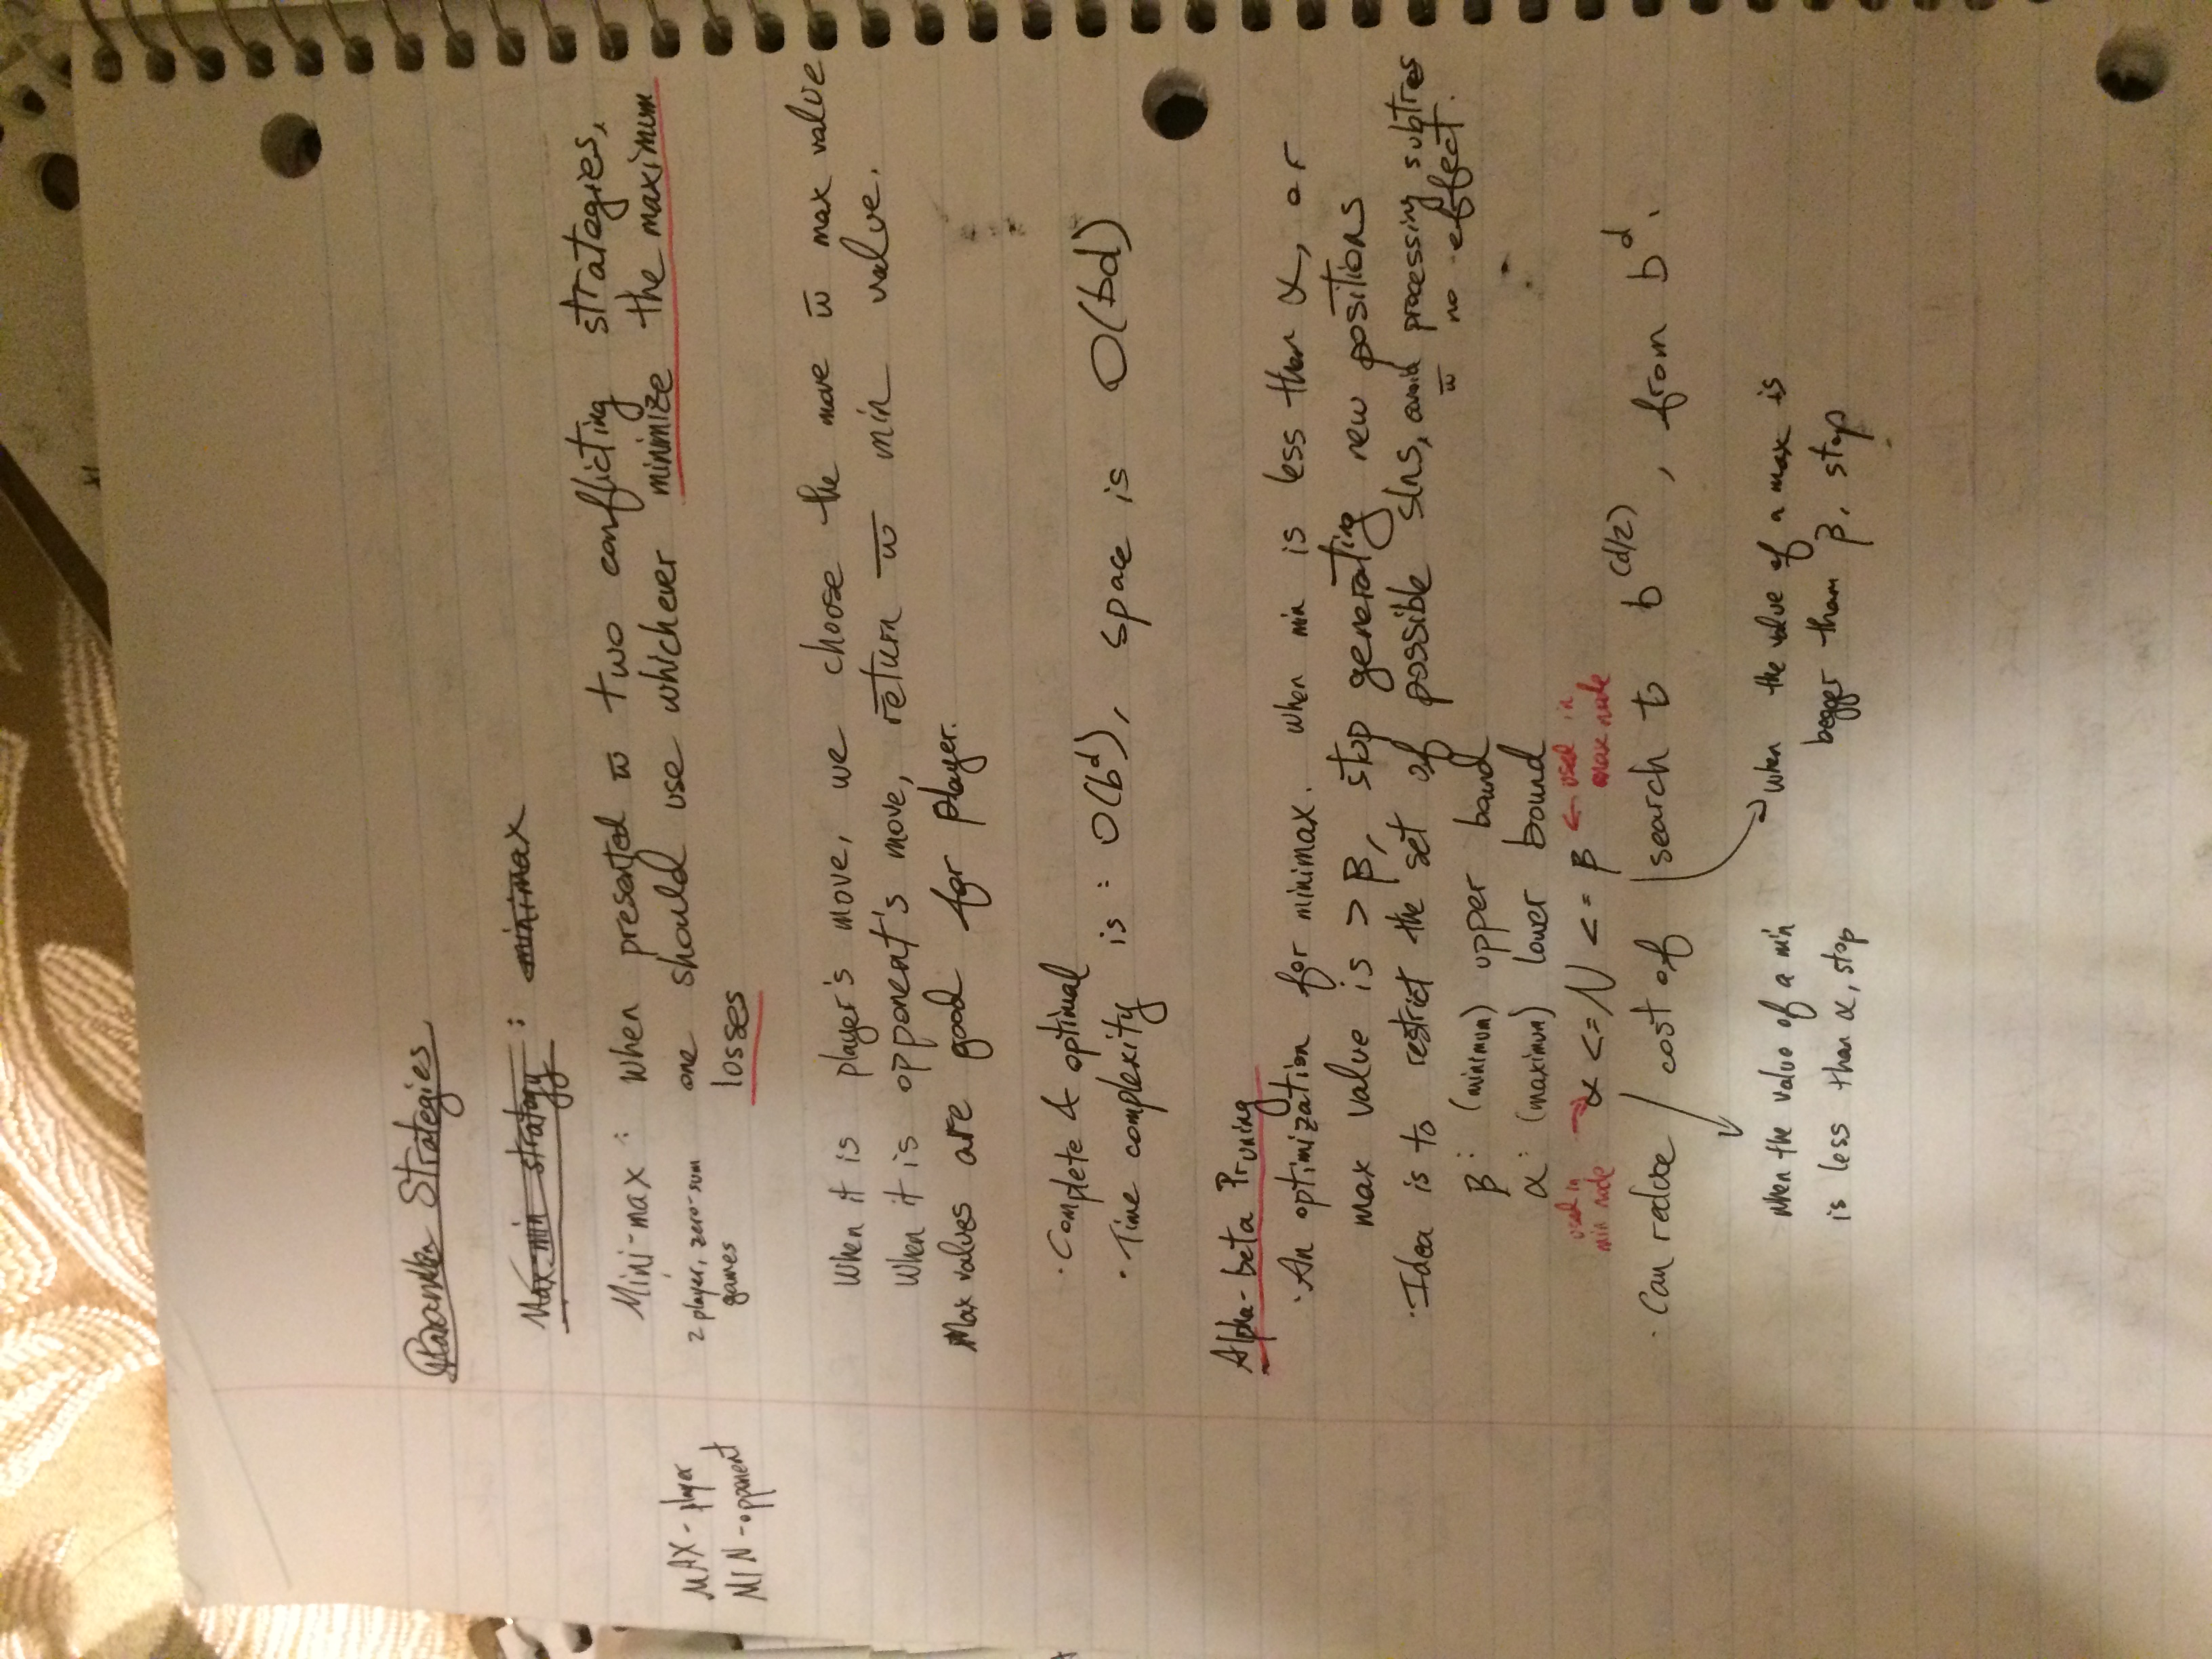 Strategies
Max-min strategy : minimax
Mini-max : when presented w̄ two conflicting strategies,
one should use whichever minimize the maximum
losses
2 player, zero-sum
games
MAX - player
MIN - opponent
When it is player's move, we choose the move w̄ max value
When it is opponent's move, return w̄ min value.
Max values are good for player.
· Complete & optimal
· Time complexity is : O(b^d), space is O(bd)
Alpha-beta Pruning
· An optimization for minimax. when min is less than α, or
max value is > β, stop generating new positions
· Idea is to restrict the set of possible slns, avoid processing subtres
w̄ no effect.
β : (minimum) upper bound
α : (maximum) lower bound
used in
min node
→ α <= N <= β ←
used in
max node
· Can reduce cost of search to b^(d/2), from b^d.
when the value of a min
is less than α, stop
when the value of a max is
begger than β, stop